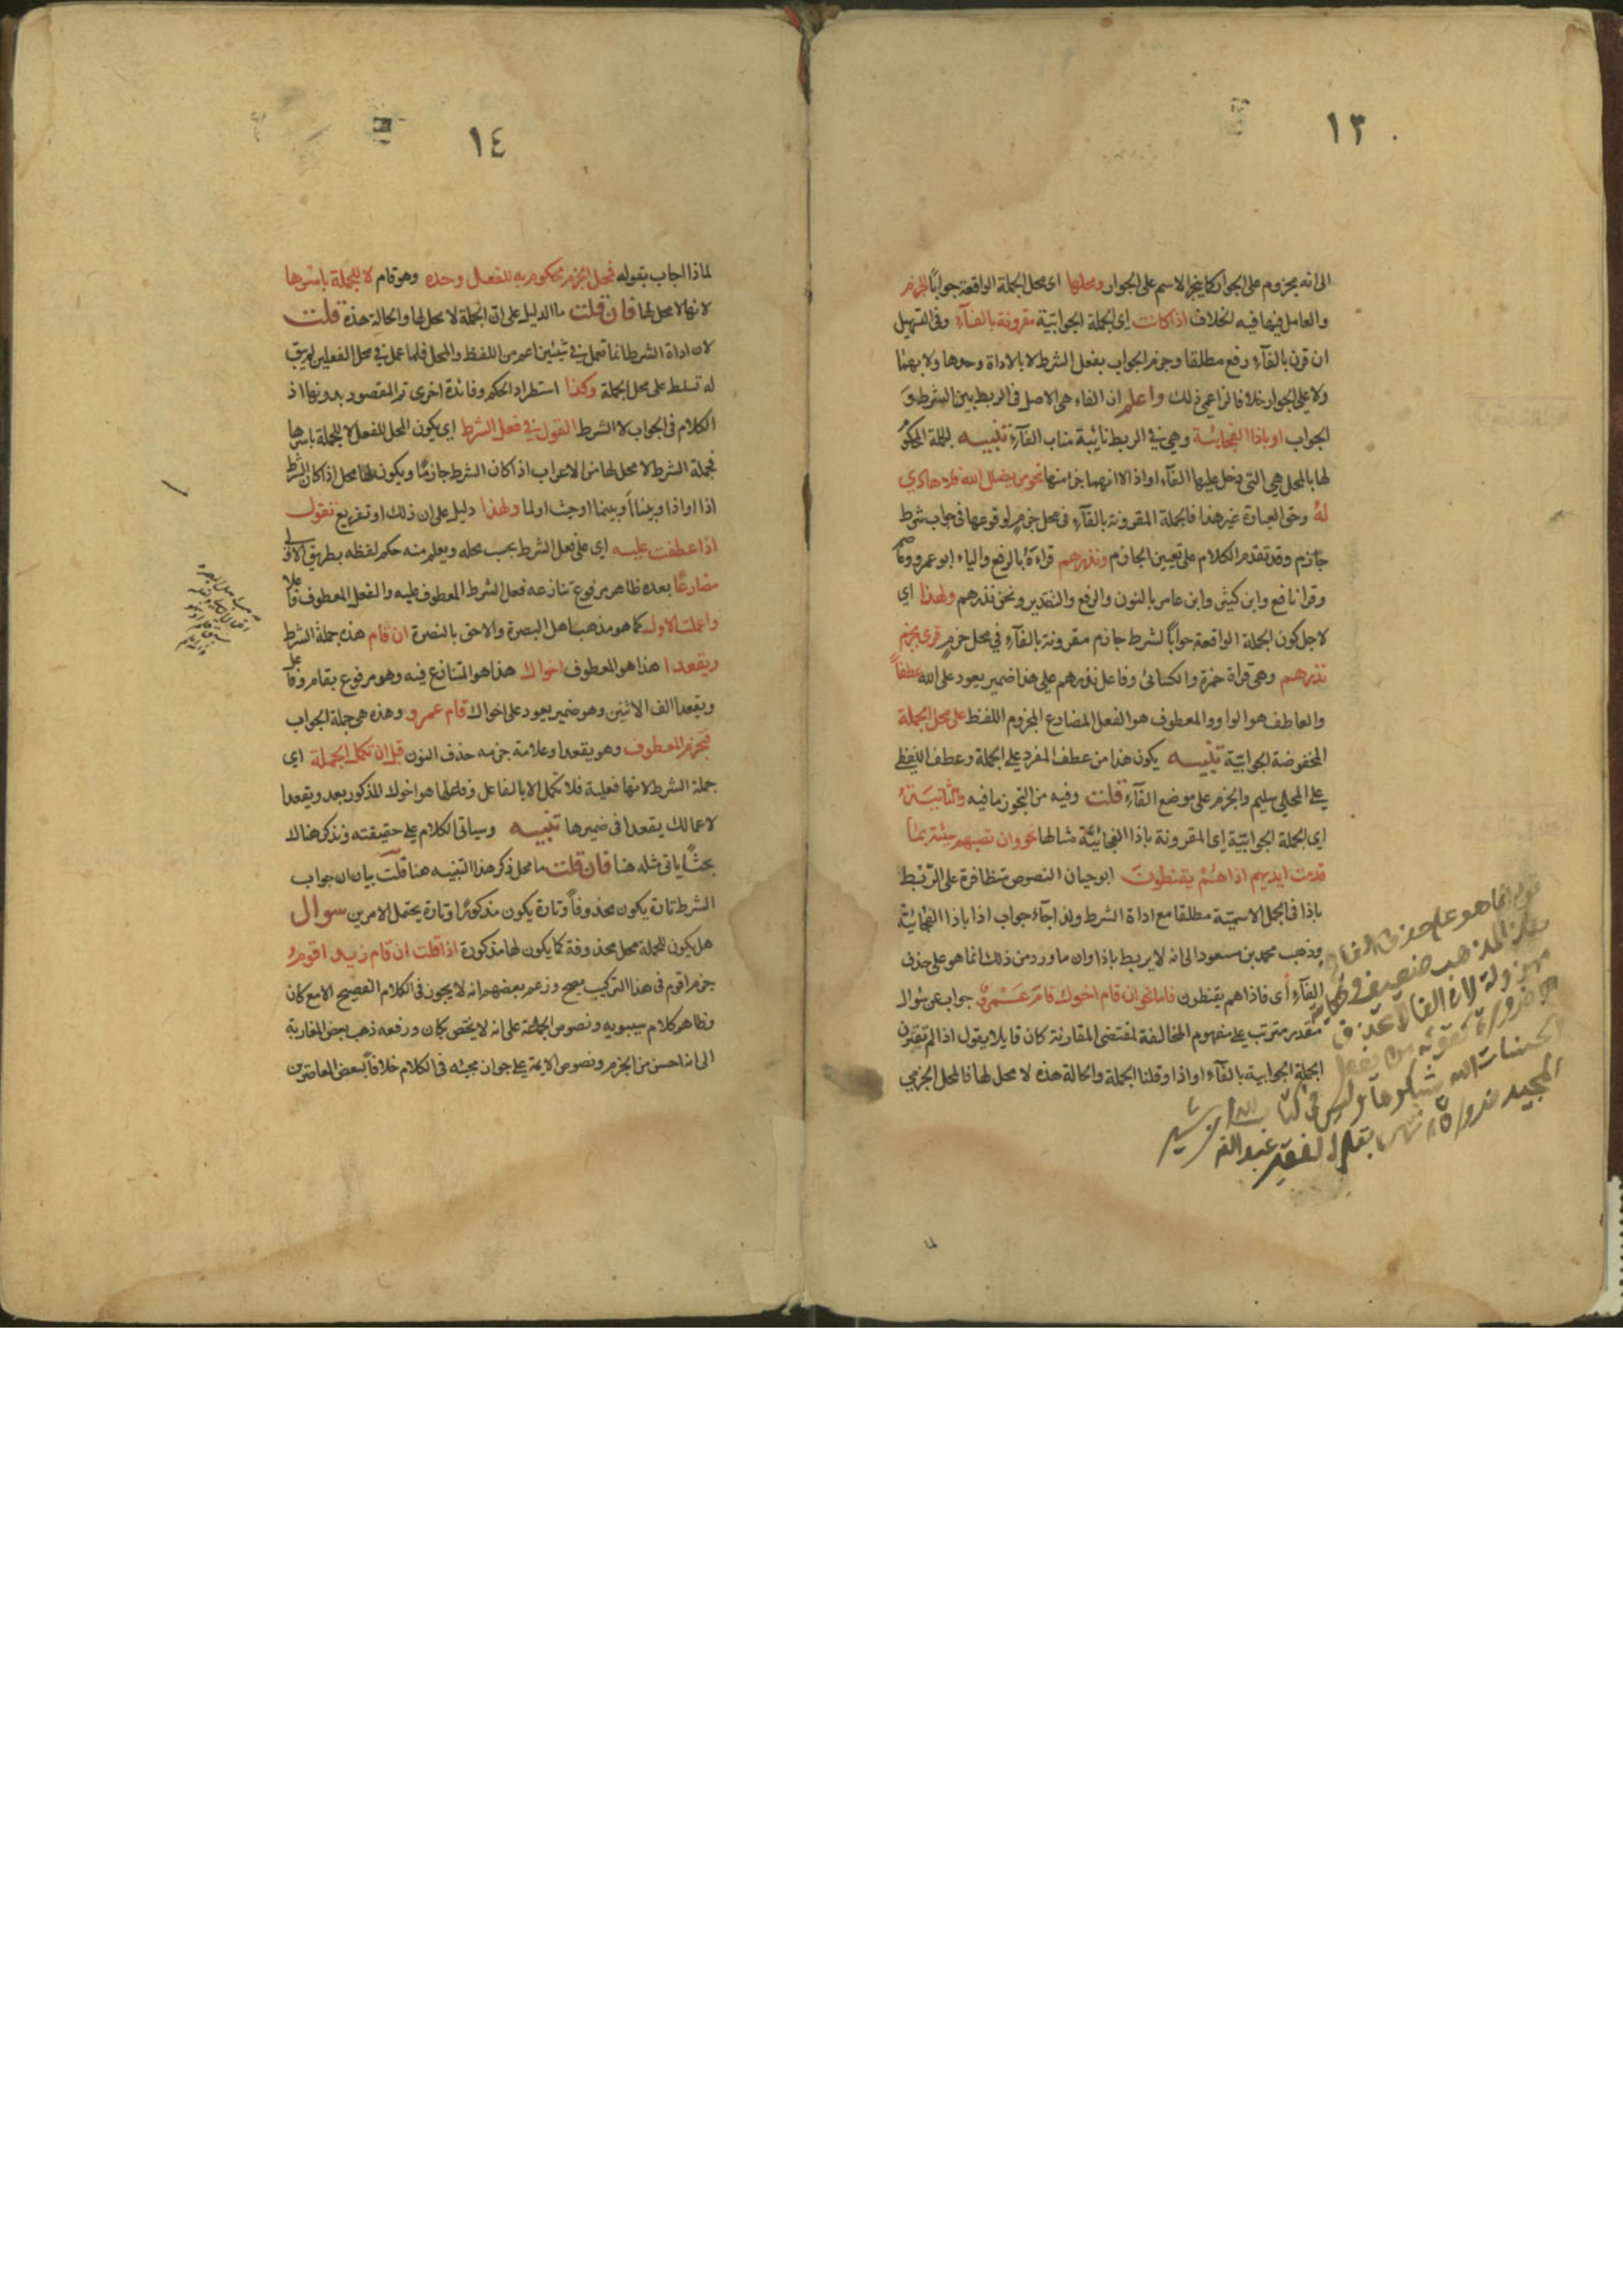 ١٣
الى انه مجزوم على الجوار كما يجر الاسم على الجوار ومحلها اى محل الجملة الواقعة جواباً الجزم
والعامل فيها فيه الخلاف اذا كانت اى الجملة الجوابية مقرونة بالفآء وفى التسهيل
ان قرن بالفآء رفع مطلقا وجزم الجواب بفعل الشرط لا بالاداة وحدها ولا بهما
ولا على الجوار خلافا لزاعمى ذلك واعلم ان الفاء هى الاصل فى الربط بين الشرط و
الجواب او باذا الفجائية وهى فى الربط نائبة مناب الفآء تنبيه الجملة المحكوم
لها بالمحل هى التى دخل عليها الفآء او اذا لا انهما جزا منها نحو من يضلل الله فلا هادى
له وحق العبارة غير هذا فالجملة المقرونة بالفآء فى محل جزم لوقوعها فى جواب شرط
جازم وقد تقدم الكلام على تعيين الجازم ونذرهم قراءة بالرفع والياء ابو عمرو وعاصم
وقرا نافع وابن كثير وابن عامر بالنون والرفع والتقدير ونحن نذرهم ولهذا اى
لاجل كون الجملة الواقعة جواباً لشرط جازم مقرونة بالفآء فى محل جزم قرى بجزم
نذرهم وهى قراة حمزة والكسائى وفاعل نذرهم على هذا ضمير يعود على الله عطفاً
والعاطف هو الواو والمعطوف هو الفعل المضارع المجزوم اللفظ على محل الجملة
المخفوضة الجوابية تنبيه يكون هذا من عطف المفرد على الجملة وعطف اللفظى
على المحلى سليم والجزم على موضع الفآء قلت وفيه من التجوز ما فيه والثانية
اى الجملة الجوابية اى المقرونة باذا الفجائية مثالها نحو وان تصبهم سيئة بما
قدمت ايديهم اذا هم يقنطون ابو حيان النصوص متظافرة على الربط
باذا فى الجمل الاسمية مطلقا مع اداة الشرط ولذا جآء جواب اذا باذا الفجائية
وذهب محمد بن مسعود الى انه لا يربط باذا وان ما ورد من ذلك انما هو على حذف
الفآء أى فاذا هم يقنطون فاما نحو ان قام اخوك قام عمرو جواب عن سوال
مقدر مترتب على مفهوم المخالفة لمقتضى المقارنة كان قايلا يقول اذا لم تقترن
الجملة الجوابية بالفآء او اذا وقلنا الجملة والحالة هذه لا محل لها فالمحل الجزمى
قوله انما هو على حذف الفاء
هذا المذهب ضعيف
لان الفاء لا تحذف
الا ضرورة كقوله من يفعل
الحسنات الله يشكرها وليس فى كتاب الله
المجيد ضرورة
بقلم الفقير عبد الله
١٤
لماذا اجاب بقوله فمحل الجزم محكوم به للفعل وحده وهو قام لا للجملة باسرها
لانها لا محل لها فان قلت ما الدليل على ان الجملة لا محل لها والحالة هذه قلت
لان اداة الشرط انما تعمل فى شيئين اعم من اللفظ والمحل فلما عمل فى محل الفعلين لم يبق
له تسلط على محل الجملة وكذا استطراد الحكم وفائدة اخرى تم المقصود بدونها اذ
الكلام فى الجواب لا الشرط القول فى فعل الشرط اى يكون المحل للفعل لا للجملة باسرها
فجملة الشرط لا محل لها من الاعراب اذا كان الشرط جازمًا ويكون لها محل اذا كان الشرط
اذا او اذا وبينا او بينما او حيث او لما ولهذا دليل على ان ذلك او تفريع نقول
اذا عطفت عليه اى على فعل الشرط بحسب محله ويعلم منه حكم لفظه بطريق الاولى
مضارعًا بعده ظاهر مرفوع تنازعه فعل الشرط المعطوف عليه والفعل المعطوف فاعلا
واعملت الاول كما هو مذهب اهل البصرة والاحق بالنصرة ان قام هذه جملة الشرط
ويقعدا هذا هو المعطوف اخواك هذا هو المتنازع فيه وهو مرفوع بقام وفاعل
ويقعدا الف الاثنين وهو ضمير يعود على اخواك قام عمرو وهذه هى جملة الجواب
فتجزم المعطوف وهو يقعدا وعلامة جزمه حذف النون قبل ان تكمل الجملة اى
جملة الشرط لانها فعلية فلا تكمل الا بالفاعل وفاعلها هو اخواك المذكور بعد ويقعدا
لاعمالك يقعدا فى ضميرها تنبيه وسياتى الكلام على حقيقته ونذكر هنالك
بحثًا ياتى مثله هنا فان قلت ما محل ذكر هذا التنبيه هنا قلت بيان ان جواب
الشرط تارة يكون محذوفاً وتارة يكون مذكورًا وتارة يحتمل الامرين سوال
هل يكون للجملة محل محذوفة كما يكون لها مذكورة اذا قلت ان قام زيد اقوم
جزم اقوم فى هذا التركيب صحيح وزعم بعضهم انه لا يجوز فى الكلام الفصيح الا مع كان
وظاهر كلام سيبويه ونصوص الجماعة على انه لا يختص بكان ورفعه ذهب بعض المغاربة
الى انه احسن من الجزم ونصوص الايمة على جواز مجيئه فى الكلام خلافاً لبعض المعاصرين